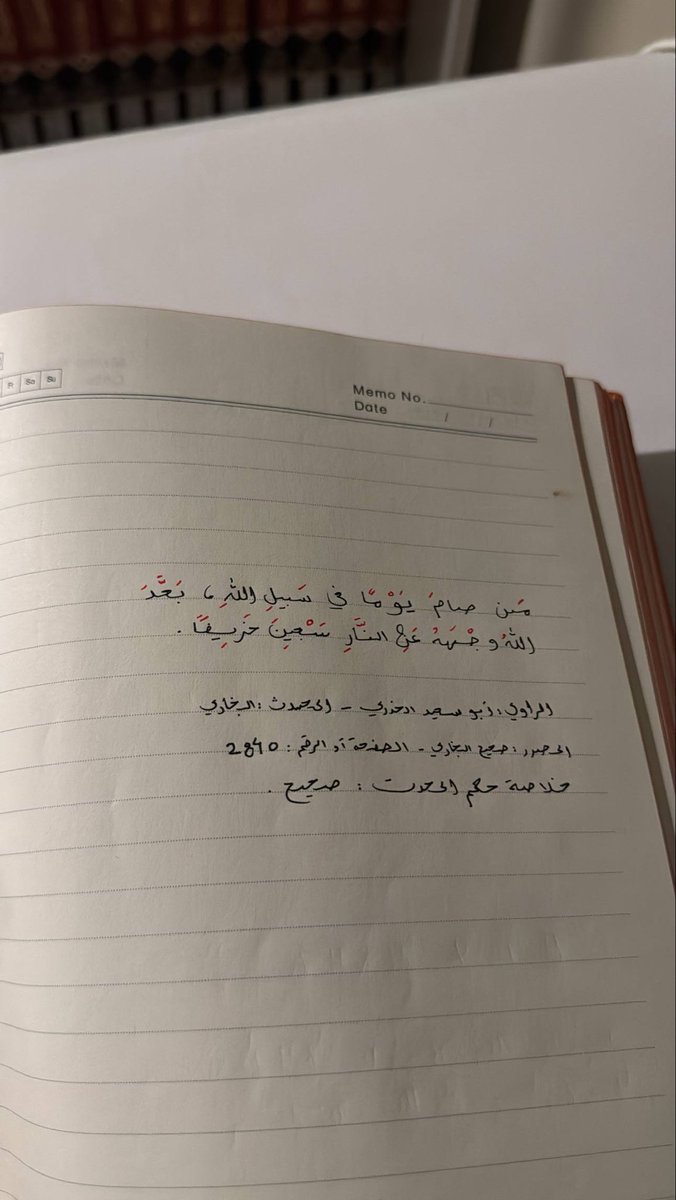 Fr Sa Su
Memo No.
Date / /
مَن صامَ يَوْمًا في سَبيلِ اللَّهِ، بَعَّدَ
اللَّهُ وجْهَهُ عَنِ النَّارِ سَبْعِينَ خَرِيفًا.
الراوي : أبو سعيد الخدري - المحدث : البخاري
المصدر : صحيح البخاري - الصفحة أو الرقم : 2840
خلاصة حكم المحدث : صحيح .